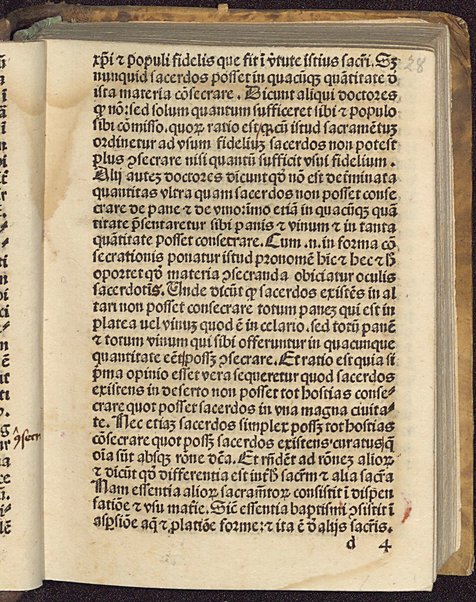 xp̄i ⁊ populi fidelis que fit ī v̄tute istius sacr̄i. Sꝫ
28
nunquid sacerdos posset in quacūqꝫ quātitate ꝺ̄
ista materia cōsecrare. Dicunt aliqui doctores
ꝙ nō: sed solum quantum sufficeret sibi ⁊ populo
sibi cōmisso. quoꝝ ratio est: qꝛ cū istud sacramētuꝫ
ordinetur ad vsum fideliuꝫ sacerdos non potest
plus ꝯsecrare nisi quantū sufficit vsui fidelium.
Alij auteꝫ doctores dicunt qō nō est de īminata
quantitas vltra quam sacerdos non posset conse
crare de pane ⁊ de vino: imo etiā in quacūqꝫ quā
titate p̄sentaretur sibi panis ⁊ vinum ⁊ in tanta
quātitate posset consecrare. Cum .n. in forma cō
secrationis ponatur istud pronomē hic ⁊ hec ⁊ h̄
oportet qō materia ꝯsecranda obiciatur oculis
sacerdotis. Unde dicūt ꝙ sacerdos existēs in al
tari non posset consecrare totum paneꝫ qui est in
platea uel vinuꝫ quod ē in celario. sed totū panē
⁊ totum vinum qui sibi offeruntur in quacunque
quantitate eēt possꝫ ꝯsecrare. Et ratio est quia si
p̄ma opinio esset vera sequeretur quod sacerdos
existens in deserto non posset tot hostias conse-
crare quot posset sacerdos in vna magna ciuita-
te. Nec etiaꝫ sacerdos simplex possꝫ tot hostias
cōsecrare quot possꝫ sacerdos existens curatus: q̄
oīa sūt absqꝫ rōne dc̄a. Et rn̄dēt ad rōneꝫ alioꝝ
⁊ dicūt qō differentia est int̄ h̄ sacr̄m ⁊ alia sacr̄a
Nam essentia alioꝝ sacramtoꝝ consistit ī dispen
satiōe ⁊ vsu mat̄ie. Sic̄ essentia baptismi ꝯsistit ī
asꝑsiōe aq̄ ⁊ ꝓlatiōe forme: ⁊ ita ē ꝺ̄ alijs sacr̄is.
d 4
ꝯsecr